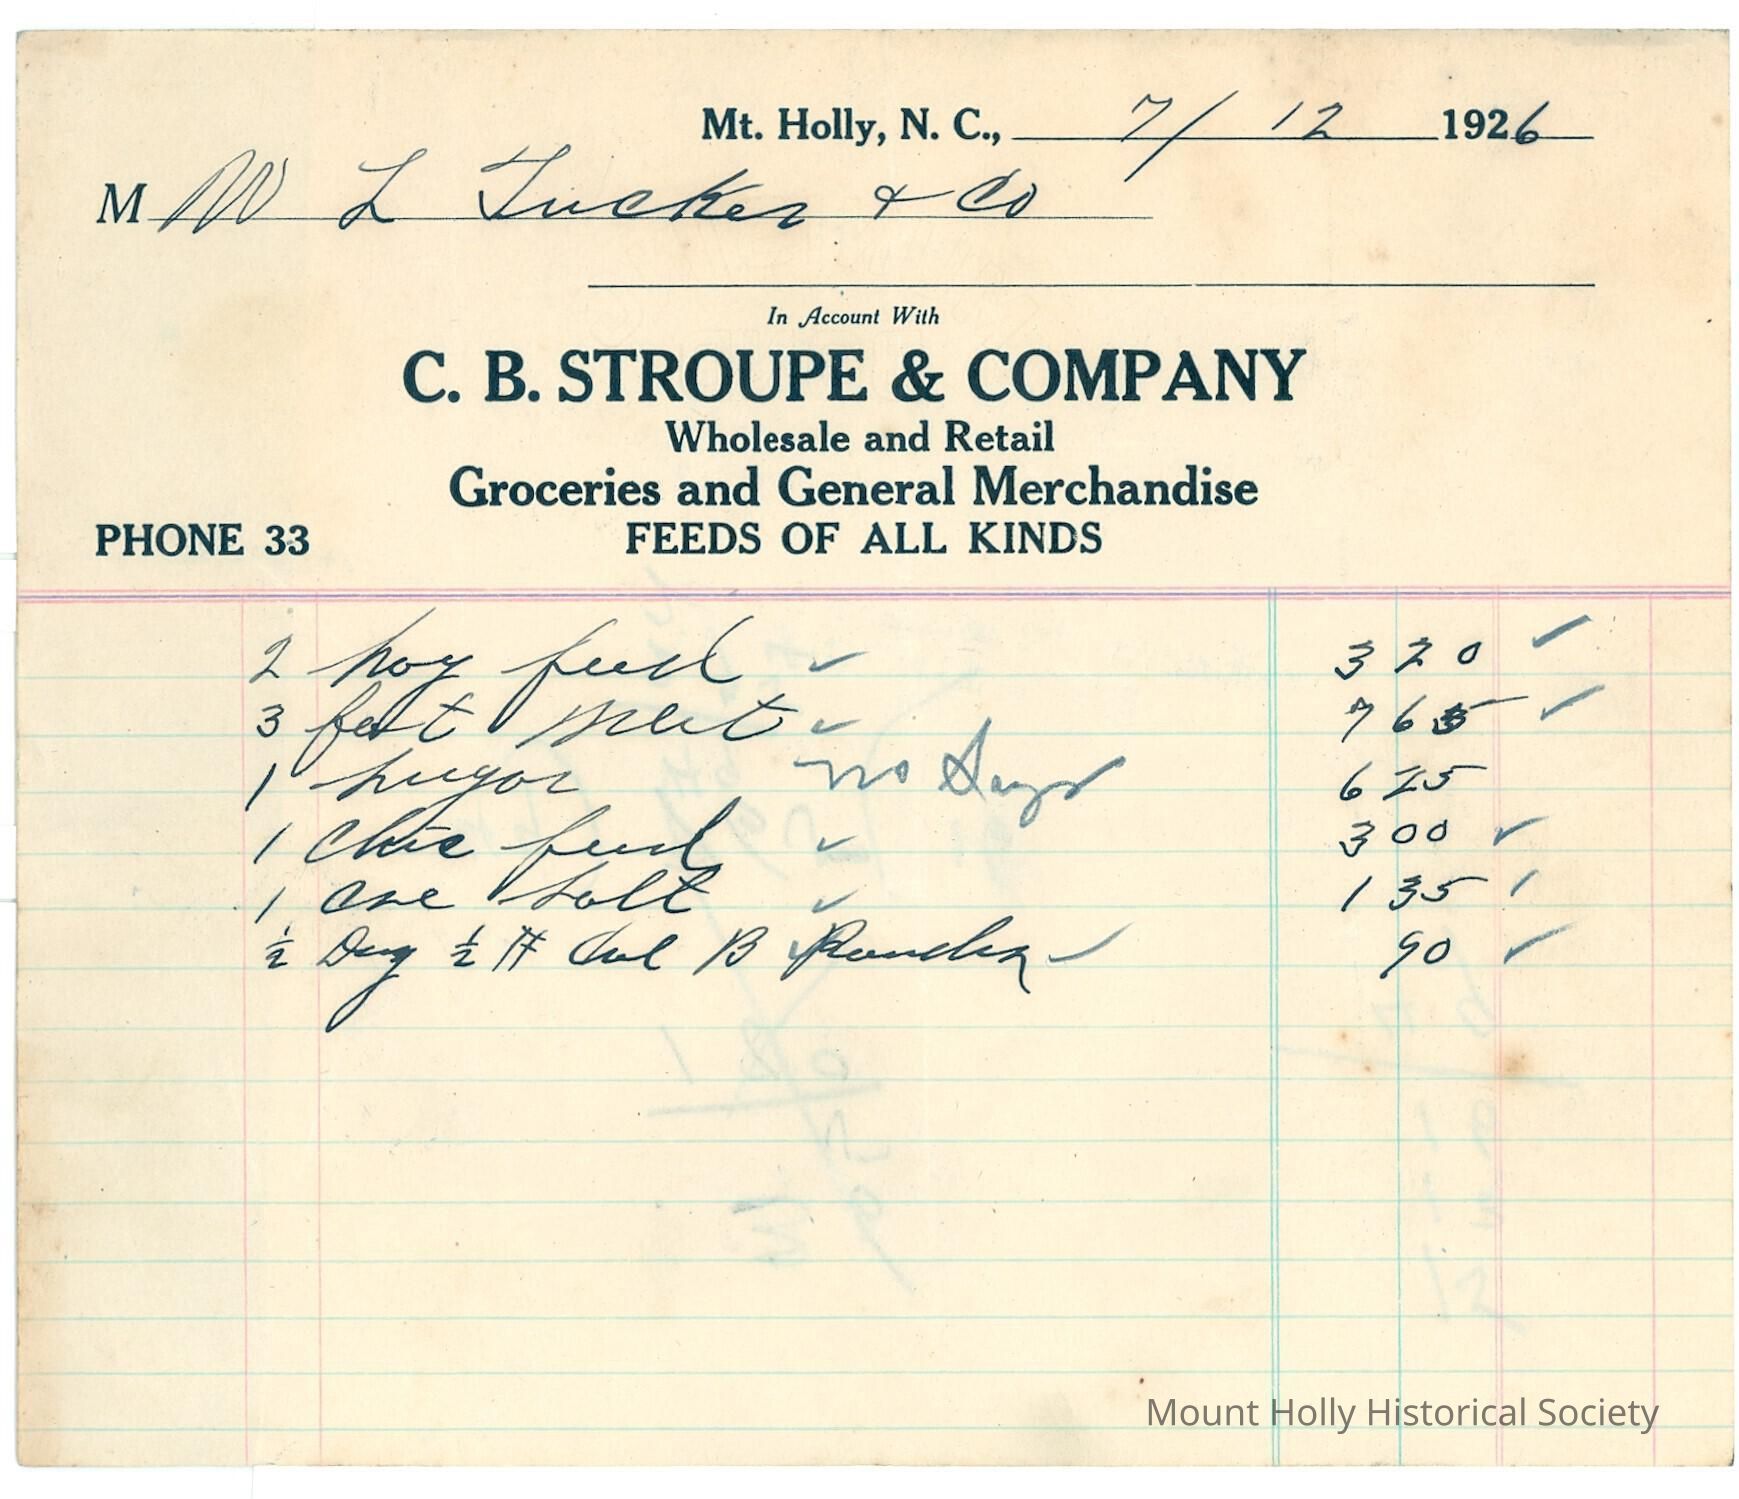 Mt. Holly, N. C., 7/ 12 1926
M W L Tucker & Co
In Account With
C. B. STROUPE & COMPANY
Wholesale and Retail
Groceries and General Merchandise
PHONE 33 FEEDS OF ALL KINDS
2 hog feed ✓ 3 20 ✓
3 fat Meat ✓ 7 65 ✓
1 sugar no 6 25
1 chic feed ✓ 3 00 ✓
1 cse salt ✓ 1 35
½ ½ # B 90 ✓
Mount Holly Historical Society